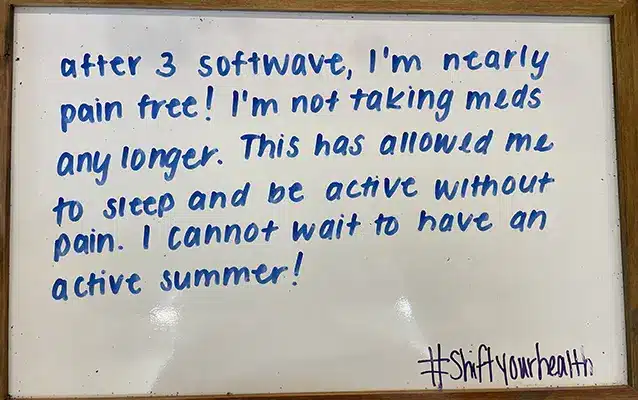 after 3 softwave, I'm nearly
pain free! I'm not taking meds
any longer. This has allowed me
to sleep and be active without
pain. I cannot wait to have an
active summer!
#Shiftyourhealth